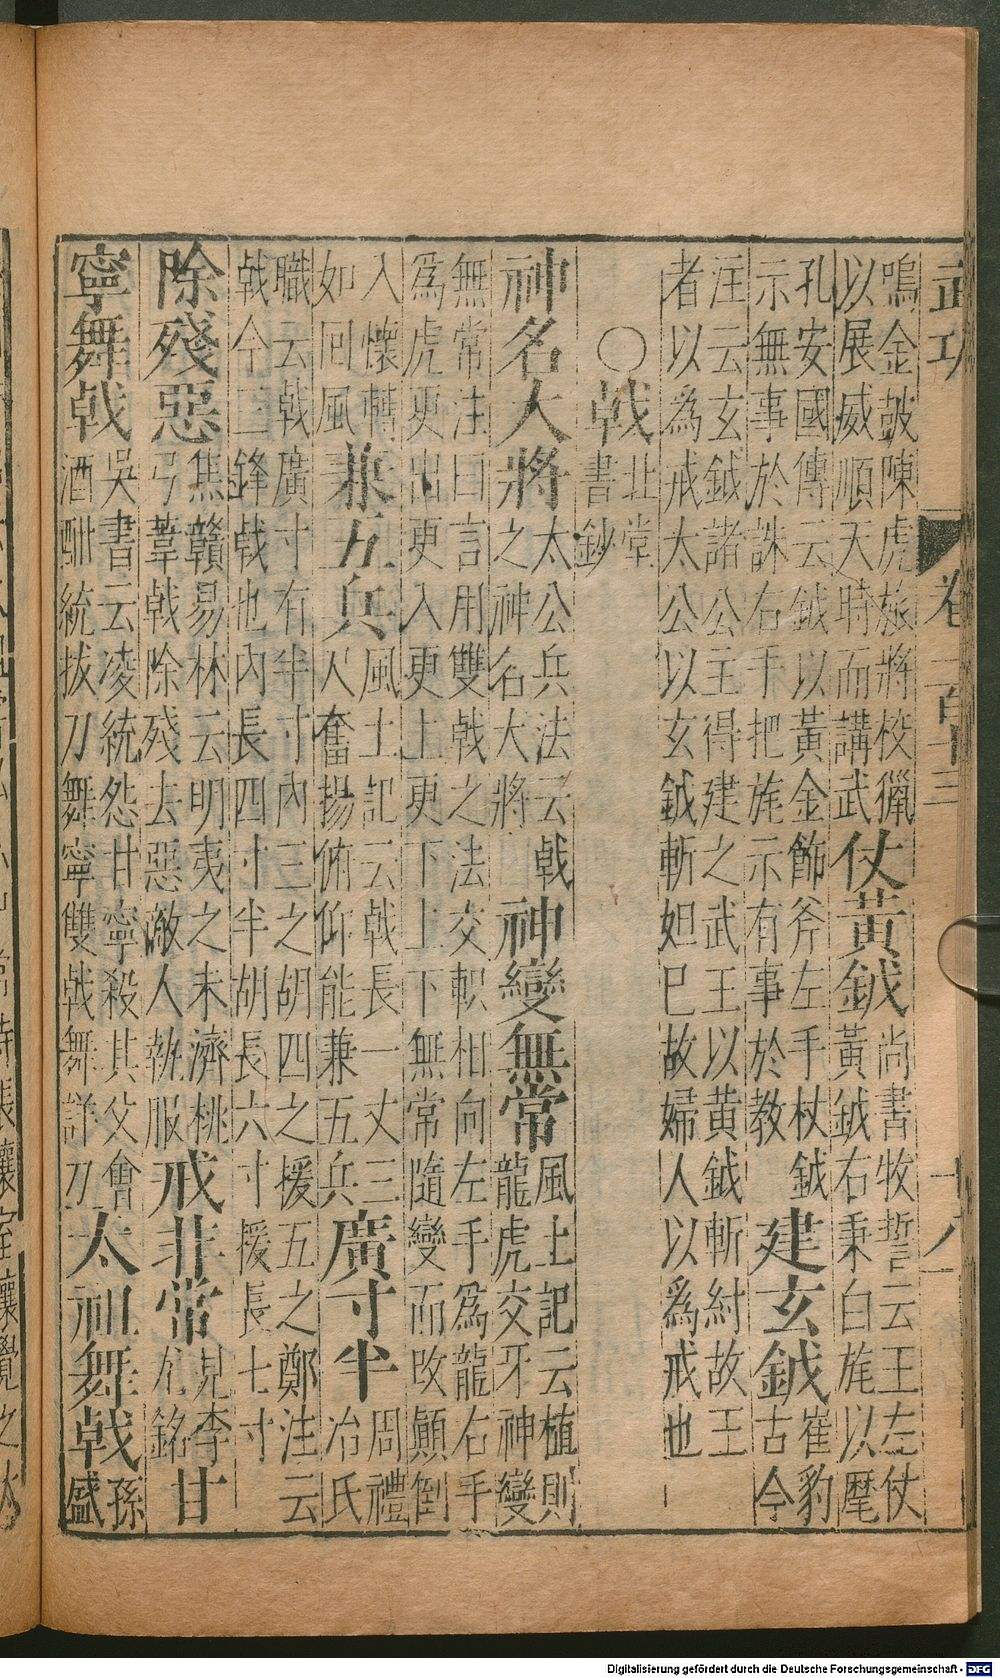 武功 卷二百十三 十八
鳴金鼓陳虎旅將校獵以展威順天時而講武仗黃鉞尚書牧誓云王左仗黃鉞右秉白旄以麾
孔安國傳云鉞以黃金飾斧左手杖鉞示無事於誅右手把旄示有事於教建玄鉞崔豹古今
注云玄鉞諸公主得建之武王以黄鉞斬紂故王者以為戒太公以玄鉞斬妲巳故婦人以爲戒也
○戟北堂書鈔
神名大將太公兵法云戟之神名大將神變無常風土記云植則龍虎交牙神變
無常注曰言用雙戟之法交軹相向左手爲龍右手爲虎更出更入更上更下上下無常隨變而改顛倒
入懷轉如回風兼五兵風土記云戟長一丈三人奮揚俯仰能兼五兵廣寸半周禮冶氏
職云戟廣寸有半寸內三之胡四之援五之鄭注云戟今三鋒戟也內長四寸半胡長六寸援長七寸
除殘惡焦贛易林云明夷之未濟桃弓葦戟除殘去惡敵人執服戒非常見李尤銘甘
寧舞戟吳書云凌統怨甘寧殺其父會酒酣統拔刀舞寧雙戟舞詳刀太祖舞戟孫盛
Digitalisierung gefördert durch die Deutsche Forschungsgemeinschaft - DFG